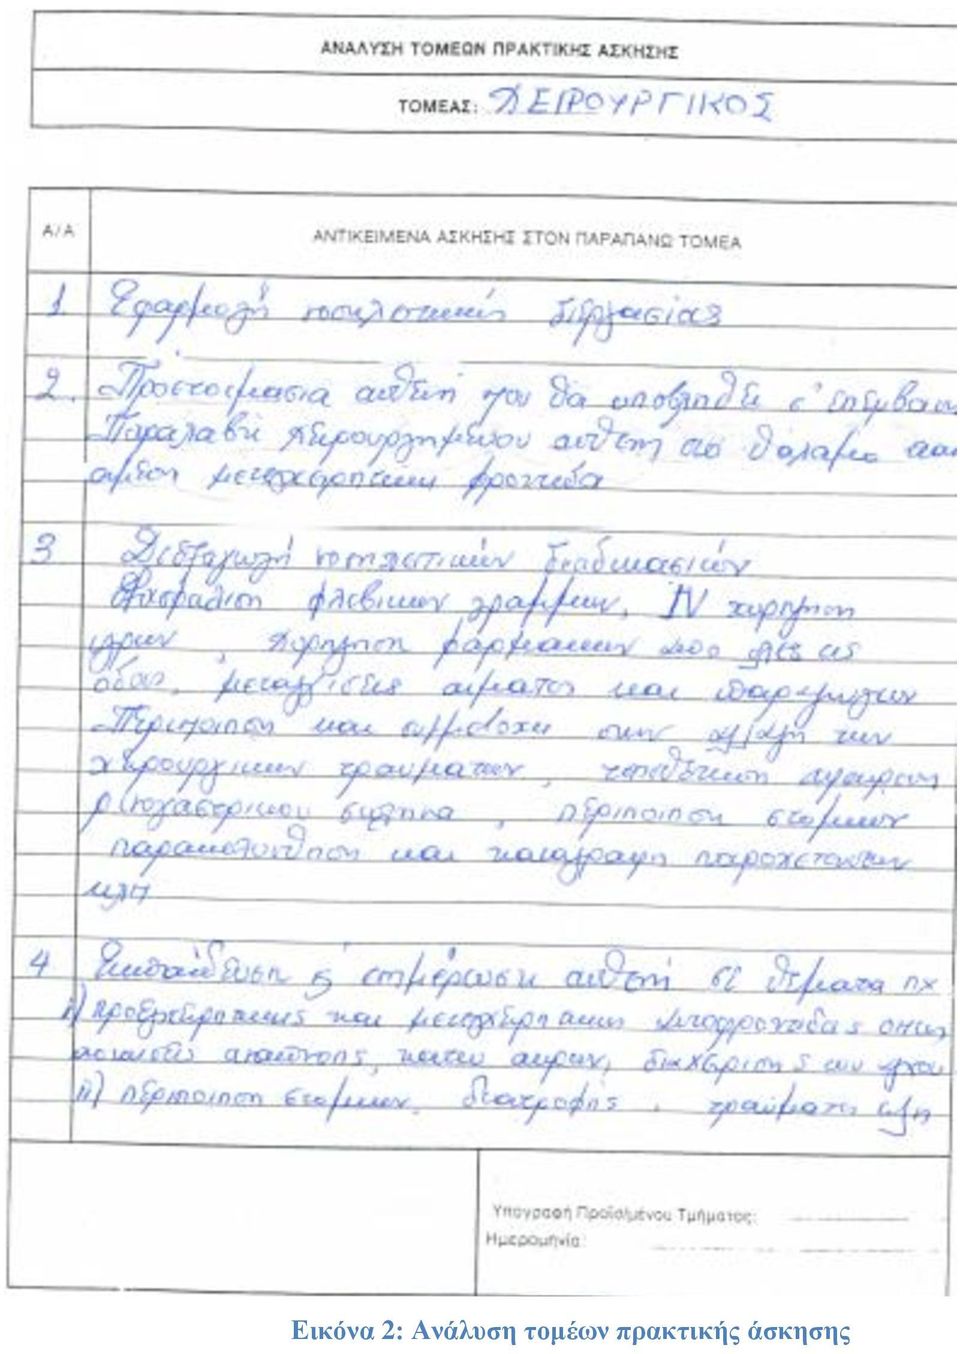 ΑΝΑΛΥΣΗ ΤΟΜΕΩΝ ΠΡΑΚΤΙΚΗΣ ΑΣΚΗΣΗΣ
ΤΟΜΕΑΣ: ΧΕΙΡΟΥΡΓΙΚΟΣ
Α/Α ΑΝΤΙΚΕΙΜΕΝΑ ΑΣΚΗΣΗΣ ΣΤΟΝ ΠΑΡΑΠΑΝΩ ΤΟΜΕΑ
1 Εφαρμογή νοσηλευτικής διεργασίας
2. Προετοιμασία ασθενή που θα υποβληθεί σ' επέμβαση
Παραλαβή χειρουργημένου ασθενή στο θάλαμο και
άμεση μετεγχειρητική φροντίδα
3 Διεξαγωγή νοσηλευτικών διαδικασιών
Εξασφάλιση φλεβικών γραμμών, IV χορήγηση
υγρών, χορήγηση φαρμάκων από όλες τις
οδούς, μεταγγίσεις αίματος και παραγώγων
Περιποίηση και συμμετοχή στην αλλαγή των
χειρουργικών τραυμάτων, τοποθέτηση αφαίρεση
ρινογαστρικού σωλήνα, περιποίηση στομιών
παρακολούθηση και καταγραφή παροχετεύσεων
κλπ
4 Εκπαίδευση ή ενημέρωση ασθενή σε θέματα πχ
i) προεγχειρητικής και μετεγχειρητικής φροντίδας όπως
ασκήσεις αναπνοής, κάτω άκρων, διαχείρισης του πόνου
ii) περιποίηση στομιών, διατροφής, τραύματος κλπ
Υπογραφή Προϊσταμένου Τμήματος:
Ημερομηνία:
Εικόνα 2: Ανάλυση τομέων πρακτικής άσκησης